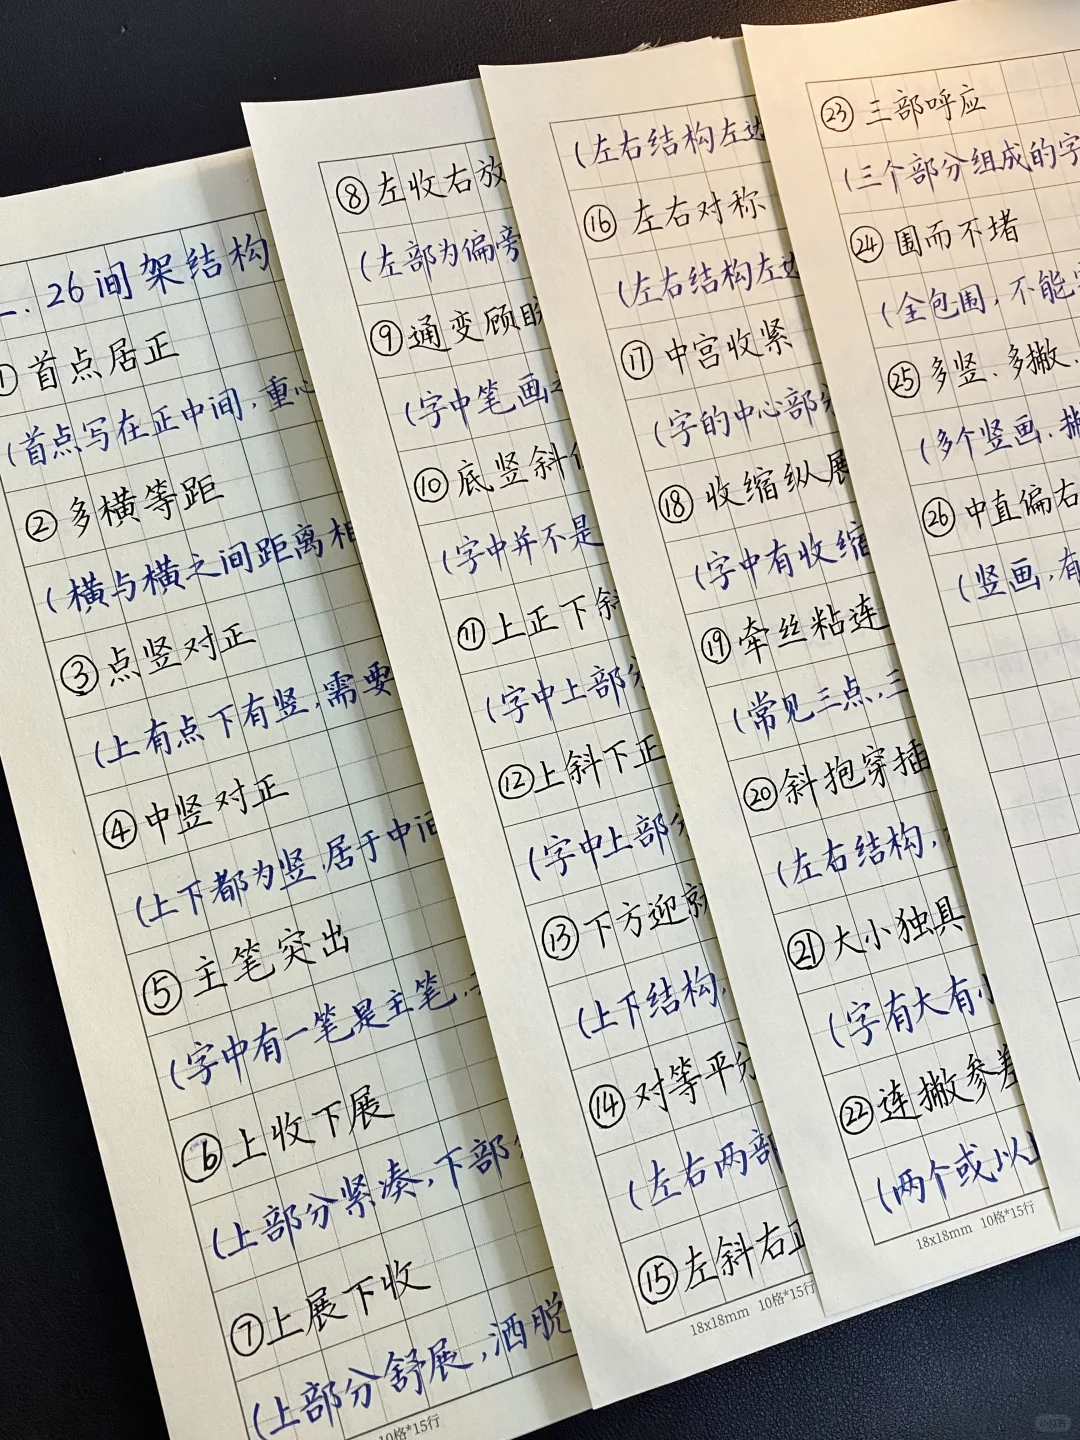 26间架结构
① 首点居正
(首点写在正中间,重心
② 多横等距
(横与横之间距离相
③ 点竖对正
(上有点下有竖,需要
④ 中竖对正
(上下都为竖,居于中间
⑤ 主笔突出
(字中有一笔是主笔,
⑥ 上收下展
(上部分紧凑,下部
⑦ 上展下收
(上部分舒展,洒脱
10格*15行
⑧ 左收右放
(左部为偏旁
⑨ 通变顾盼
(字中笔画
⑩ 底竖斜
(字中并不是
⑪ 上正下斜
(字中上部分
⑫ 上斜下正
(字中上部分
⑬ 下方迎就
(上下结构,
⑭ 对等平分
(左右两部
⑮ 左斜右正
18x18mm 10格*15行
(左右结构左边
⑯ 左右对称
(左右结构左边
⑰ 中宫收紧
(字的中心部分
⑱ 收缩纵展
(字中有收缩
⑲ 牵丝粘连
(常见三点,三
⑳ 斜抱穿插
(左右结构,
㉑ 大小独具
(字有大有小
㉒ 连撇参差
(两个或以
18x18mm 10格*15行
㉓ 三部呼应
(三个部分组成的字
㉔ 围而不堵
(全包围,不能
㉕ 多竖、多撇、
(多个竖画、撇
㉖ 中直偏右
(竖画,有
小红书